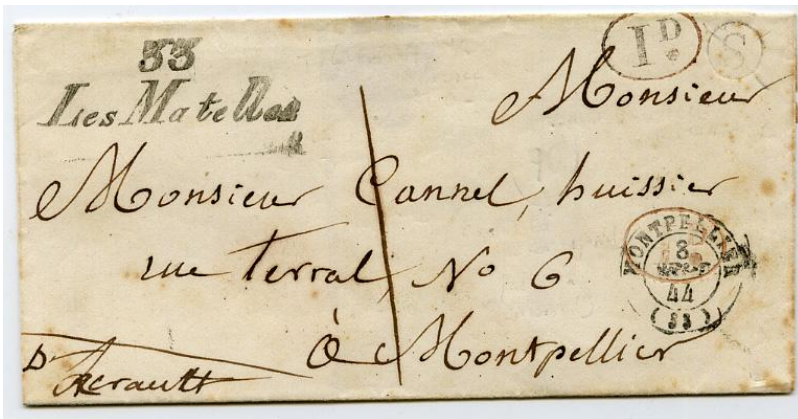 33
Les Matelles
1D
S
Monsieur
Monsieur Cannel, huissier
rue Terral, No 6
à Montpellier
D Herault
1
MONTPELLIER
8
MARS
44
(33)